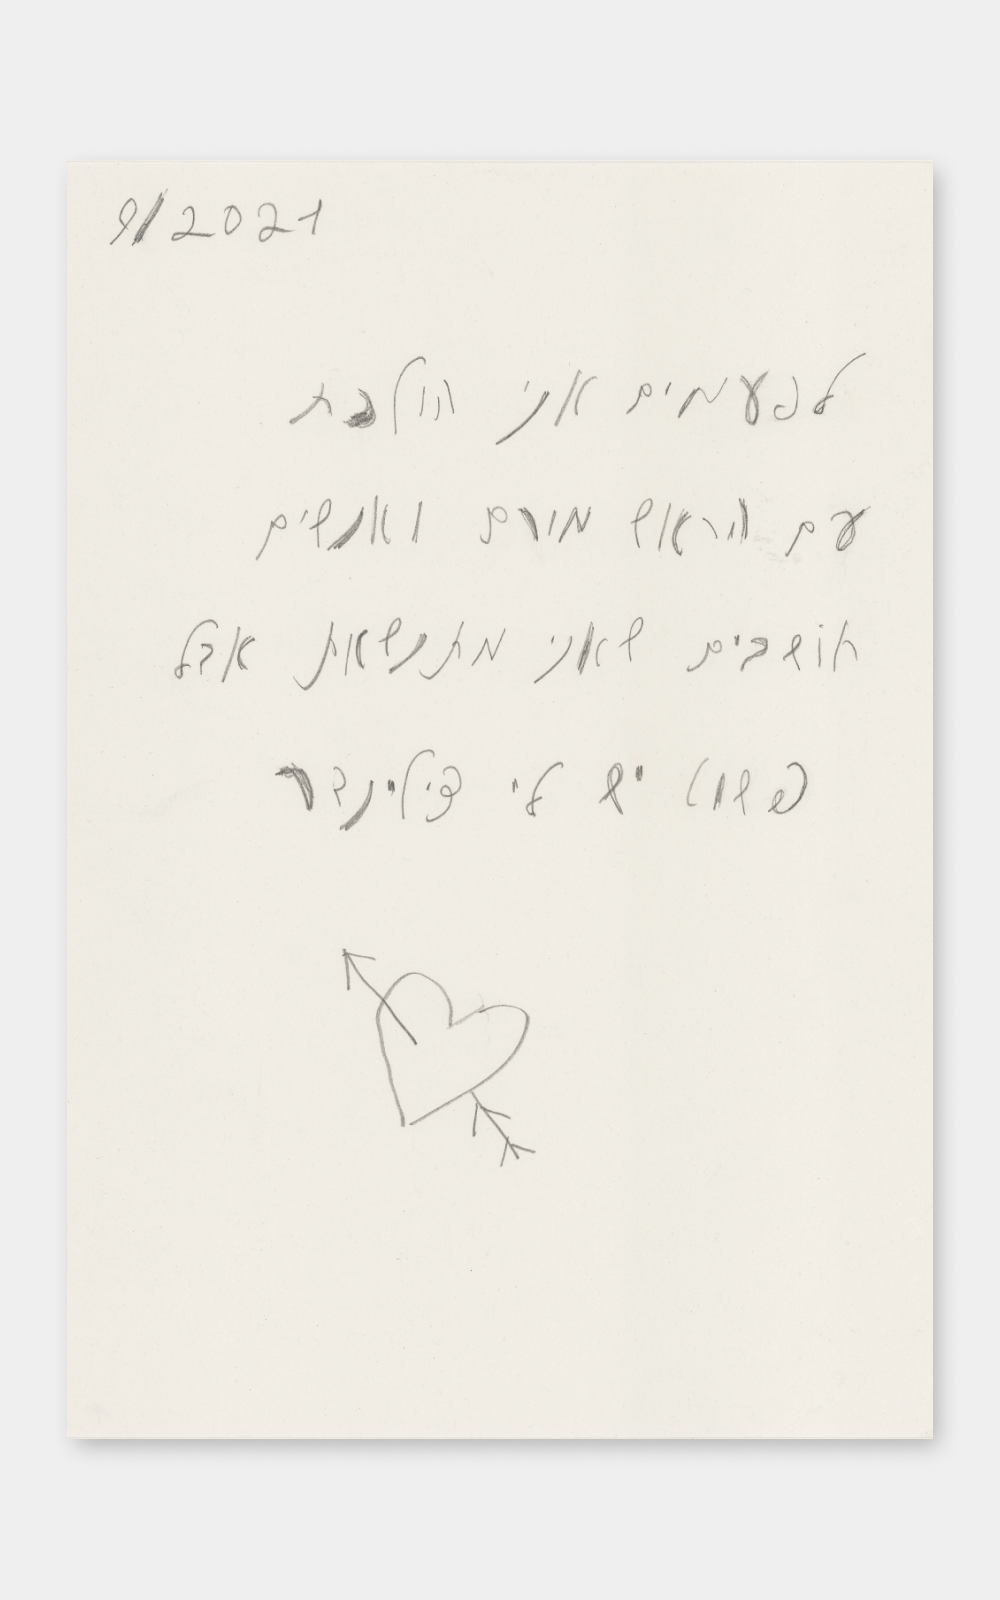 9/2021
לפעמים אני הולכת
עם הראש מורם ואנשים
חושבים שאני מתנשאת אבל
פשוט יש לי צילינדר